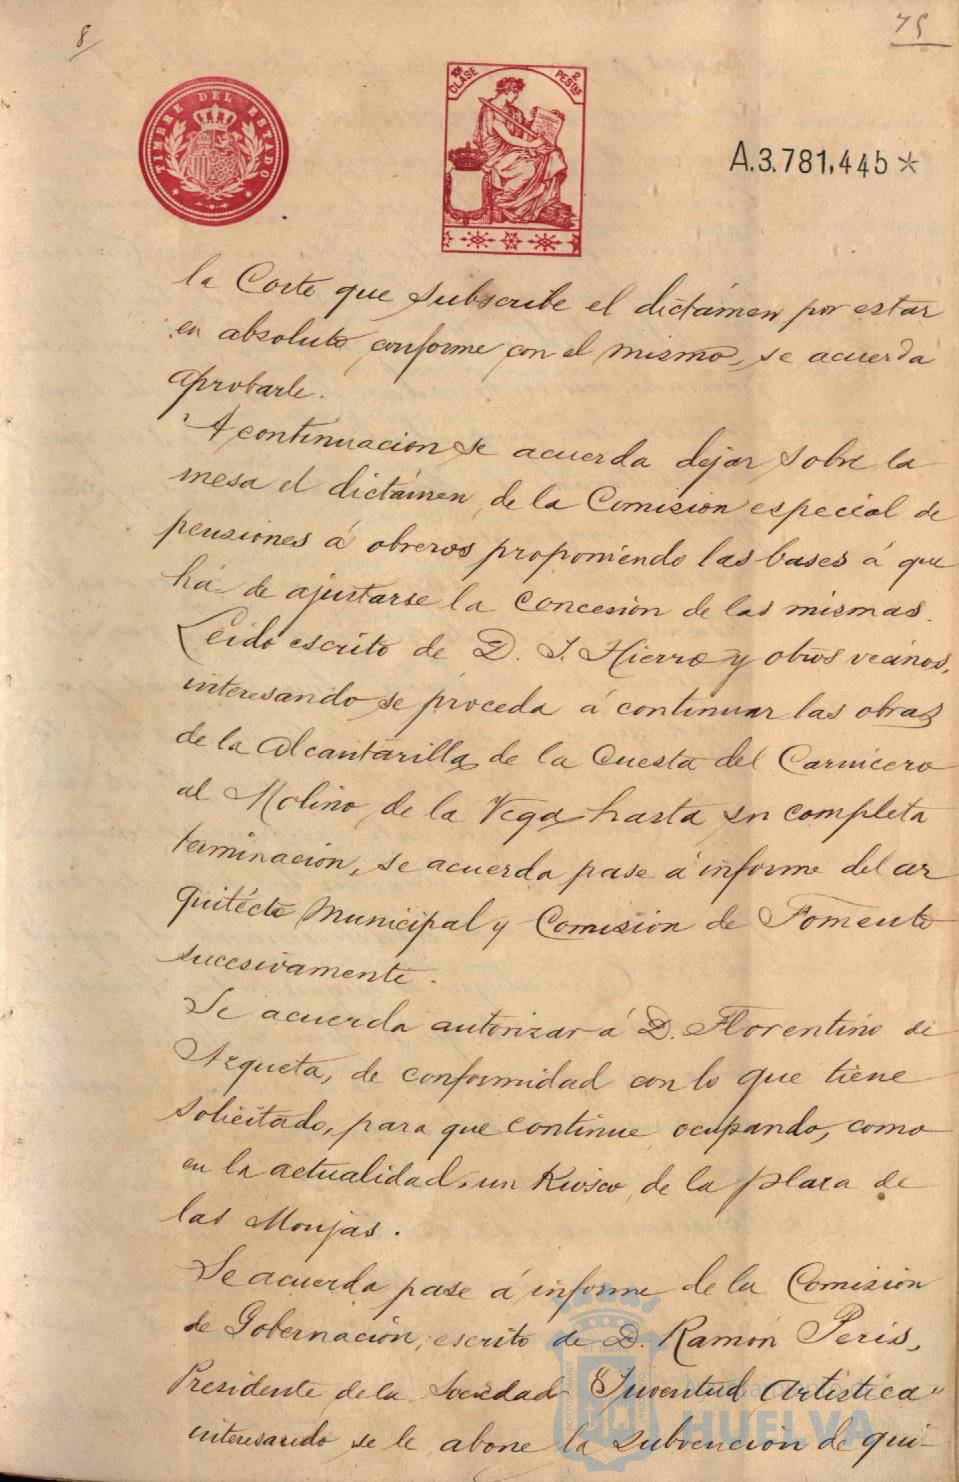 8/
75
TIMBRE DEL ESTADO
10ª CLASE
2 PESTAS
A.3.781,445*
la Corte que subscribe el dictámen por estar
en absoluto conforme con el mismo, se acuerda
aprobarle.
A continuacion se acuerda dejar sobre la
mesa el dictámen de la Comision especial de
pensiones á obreros proponiendo las bases á que
há de ajustarse la concesión de las mismas.
Leido escrito de D. J. Hierro y otros vecinos,
interesando se proceda á continuar las obras
de la Alcantarilla de la Cuesta del Carnicero
al Molino de la Vega hasta su completa
terminación, se acuerda pase á informe del ar
quitécto Municipal y Comisión de Fomento
sucesivamente.
Se acuerda autorizar á D. Florentino de
Azqueta, de conformidad con lo que tiene
solicitado, para que continue ocupando, como
en la actualidad, un Kiosco de la plaza de
las Monjas.
Se acuerda pase á informe de la Comisión
de Gobernación, escrito de D. Ramón Peris,
Presidente de la Sociedad "Juventud Artistica"
interesando se le abone la subvención de qui-
HUELVA